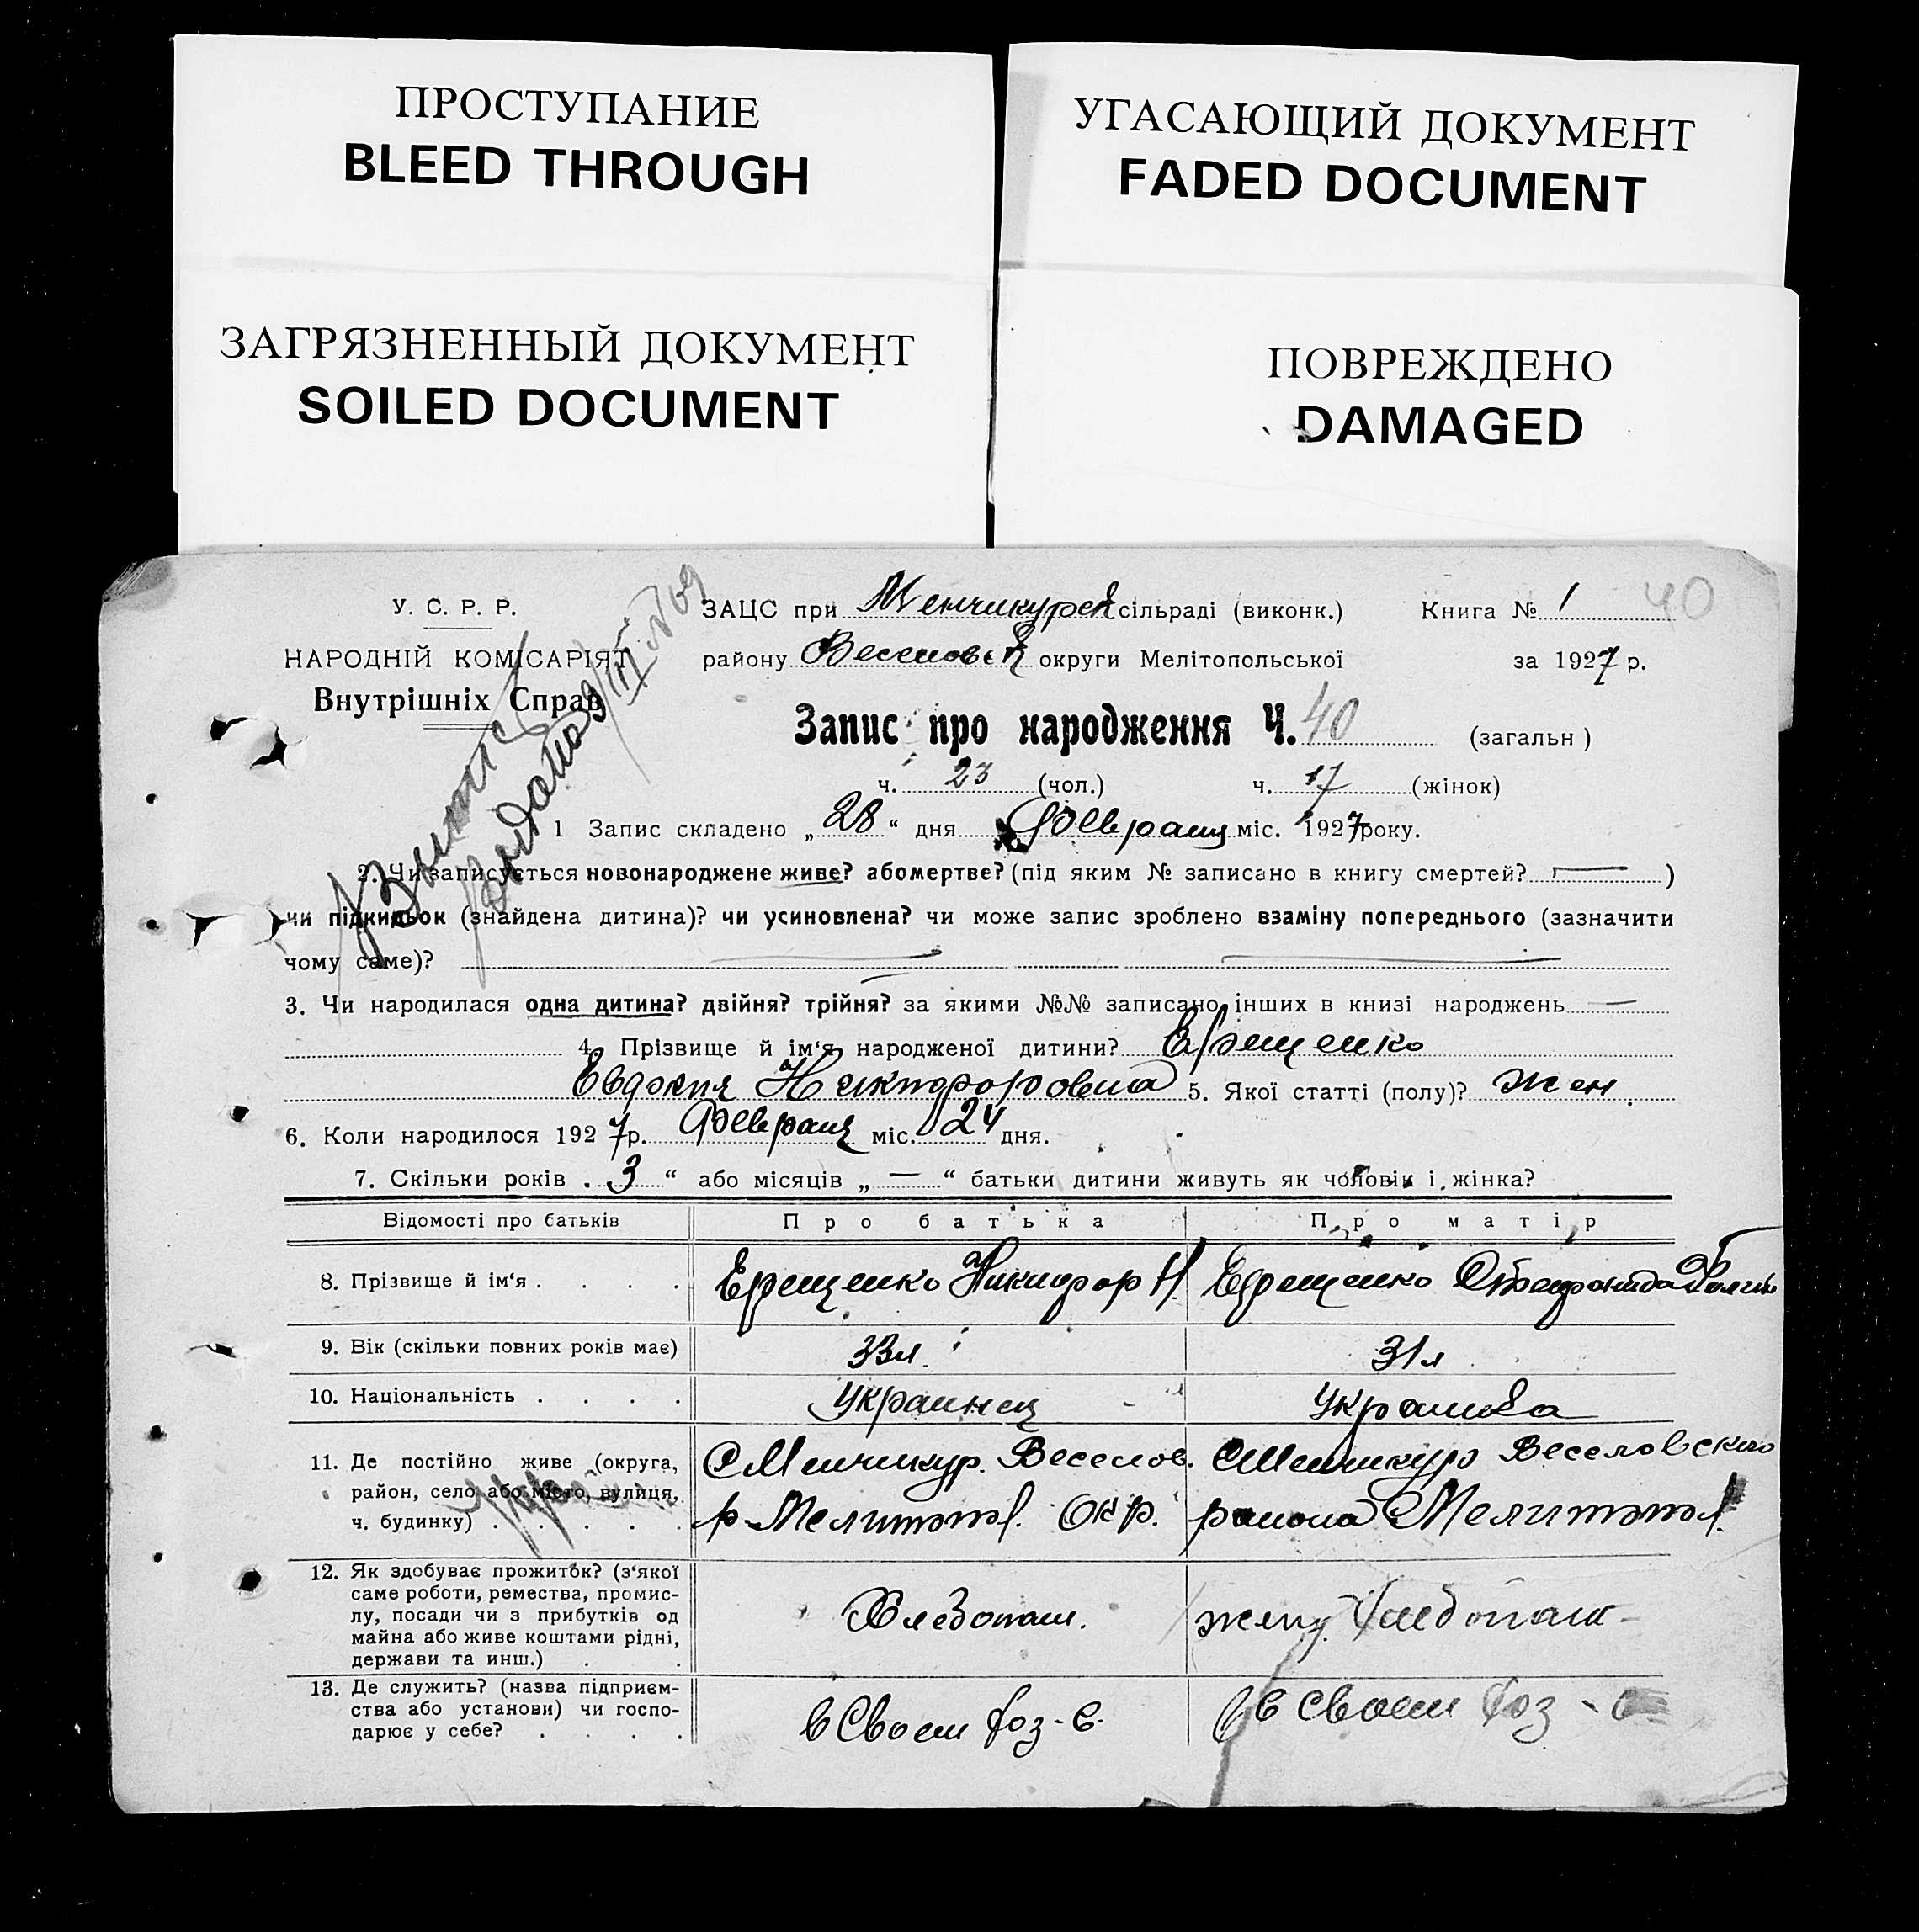 ПРОСТУПАНИЕ
BLEED THROUGH
УГАСАЮЩИЙ ДОКУМЕНТ
FADED DOCUMENT
ЗАГРЯЗНЕННЫЙ ДОКУМЕНТ
SOILED DOCUMENT
ПОВРЕЖДЕНО
DAMAGED
У. С. Р. Р.
НАРОДНІЙ КОМІСАРІЯТ
Внутрішніх Справ
ЗАЦС при Менчикурск сільраді (виконк.) Книга № 1 40
району Веселовск округи Мелітопольської за 1927 р.
Запис про народження Ч. 40 (загальн)
ч. 23 (чол.) ч. 17 (жінок)
1 Запис складено „ 28 “ дня Февраля міс. 1927 року.
2. Чи записується новонароджене живе? або мертве? (під яким № записано в книгу смертей? — )
чи підкидьок (знайдена дитина)? чи усиновлена? чи може запис зроблено взаміну попереднього (зазначити
чому саме)? — —
3. Чи народилася одна дитина? двійня? трійня? за якими №№ записано інших в книзі народжень —
4. Прізвище й ім‘я народженої дитини? Ерещенко
Евдокия Никифоровна 5. Якої статті (полу)? жен.
6. Коли народилося 1927 р. Февраля міс. 24 дня.
7. Скільки років „ 3 “ або місяців „ — “ батьки дитини живуть як чоловік і жінка?
Відомості про батьків Про батька Про матір
8. Прізвище й ім‘я . . . . Ерещенко Никифор Н. Ерещенко
9. Вік (скільки повних років має) 33 л. 31 л
10. Національність . . . . Украинец Украинка
11. Де постійно живе (округа, район, село або місто, вулиця, ч. будинку) . . . . . С Менчикур. Веселов. р. Мелитоп. Окр. С Менчикур Веселовского района Мелитоп.
12. Як здобуває прожиток? (з‘якої саме роботи, ремества, промислу, посади чи з прибутків од майна або живе коштами рідні, держави та инш.) . . Хлебопаш. Хлебопаш
13. Де служить? (назва підприємства або установи) чи господарює у себе? . . . . в Своем хоз-в. в Своем хоз-
Выпись
выдана 9/III № 109